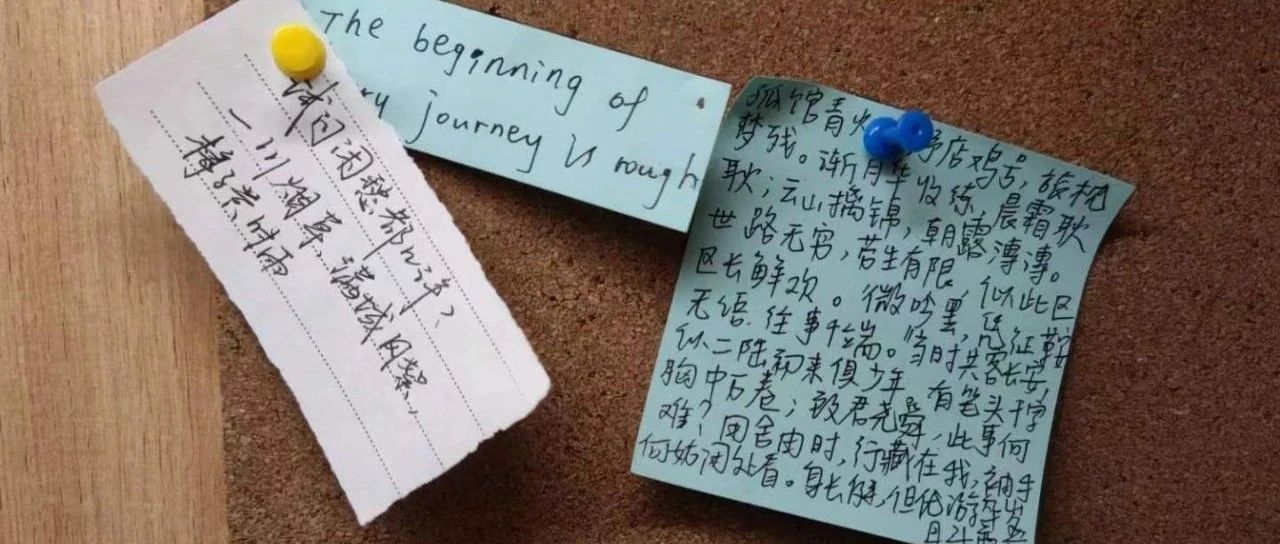 试问闲愁都几许？
一川烟草，满城风絮，
梅子黄时雨
The beginning of
ry journey is rough
孤馆青 店鸡号，旅枕
梦残。渐月华收练，晨霜耿
耿；云山摛锦，朝露漙漙。
世路无穷，劳生有限，似此区
区长鲜欢。微吟罢，凭征鞍
无语，往事千端。当时共客长安，
似二陆初来俱少年。有笔头千字
胸中万卷；致君尧舜，此事何
难？用舍由时，行藏在我，袖手
何妨闲处看。身长健，但优游卒岁